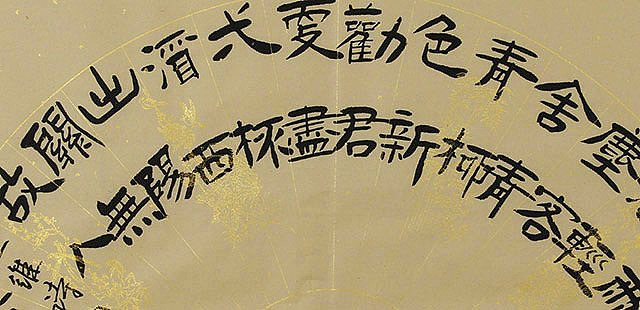 雨
輕
塵客
舍青
青柳
色新
勸君
更盡
弌杯
酒西
出陽
關無
故人
維詩